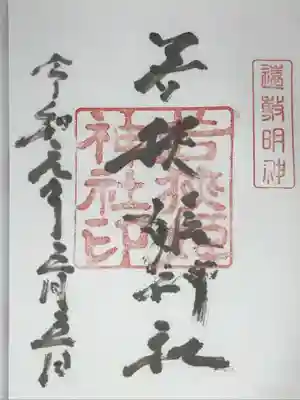 遠敷明神
若狭姫神社
若狭姫
神社印
令和年三月五日